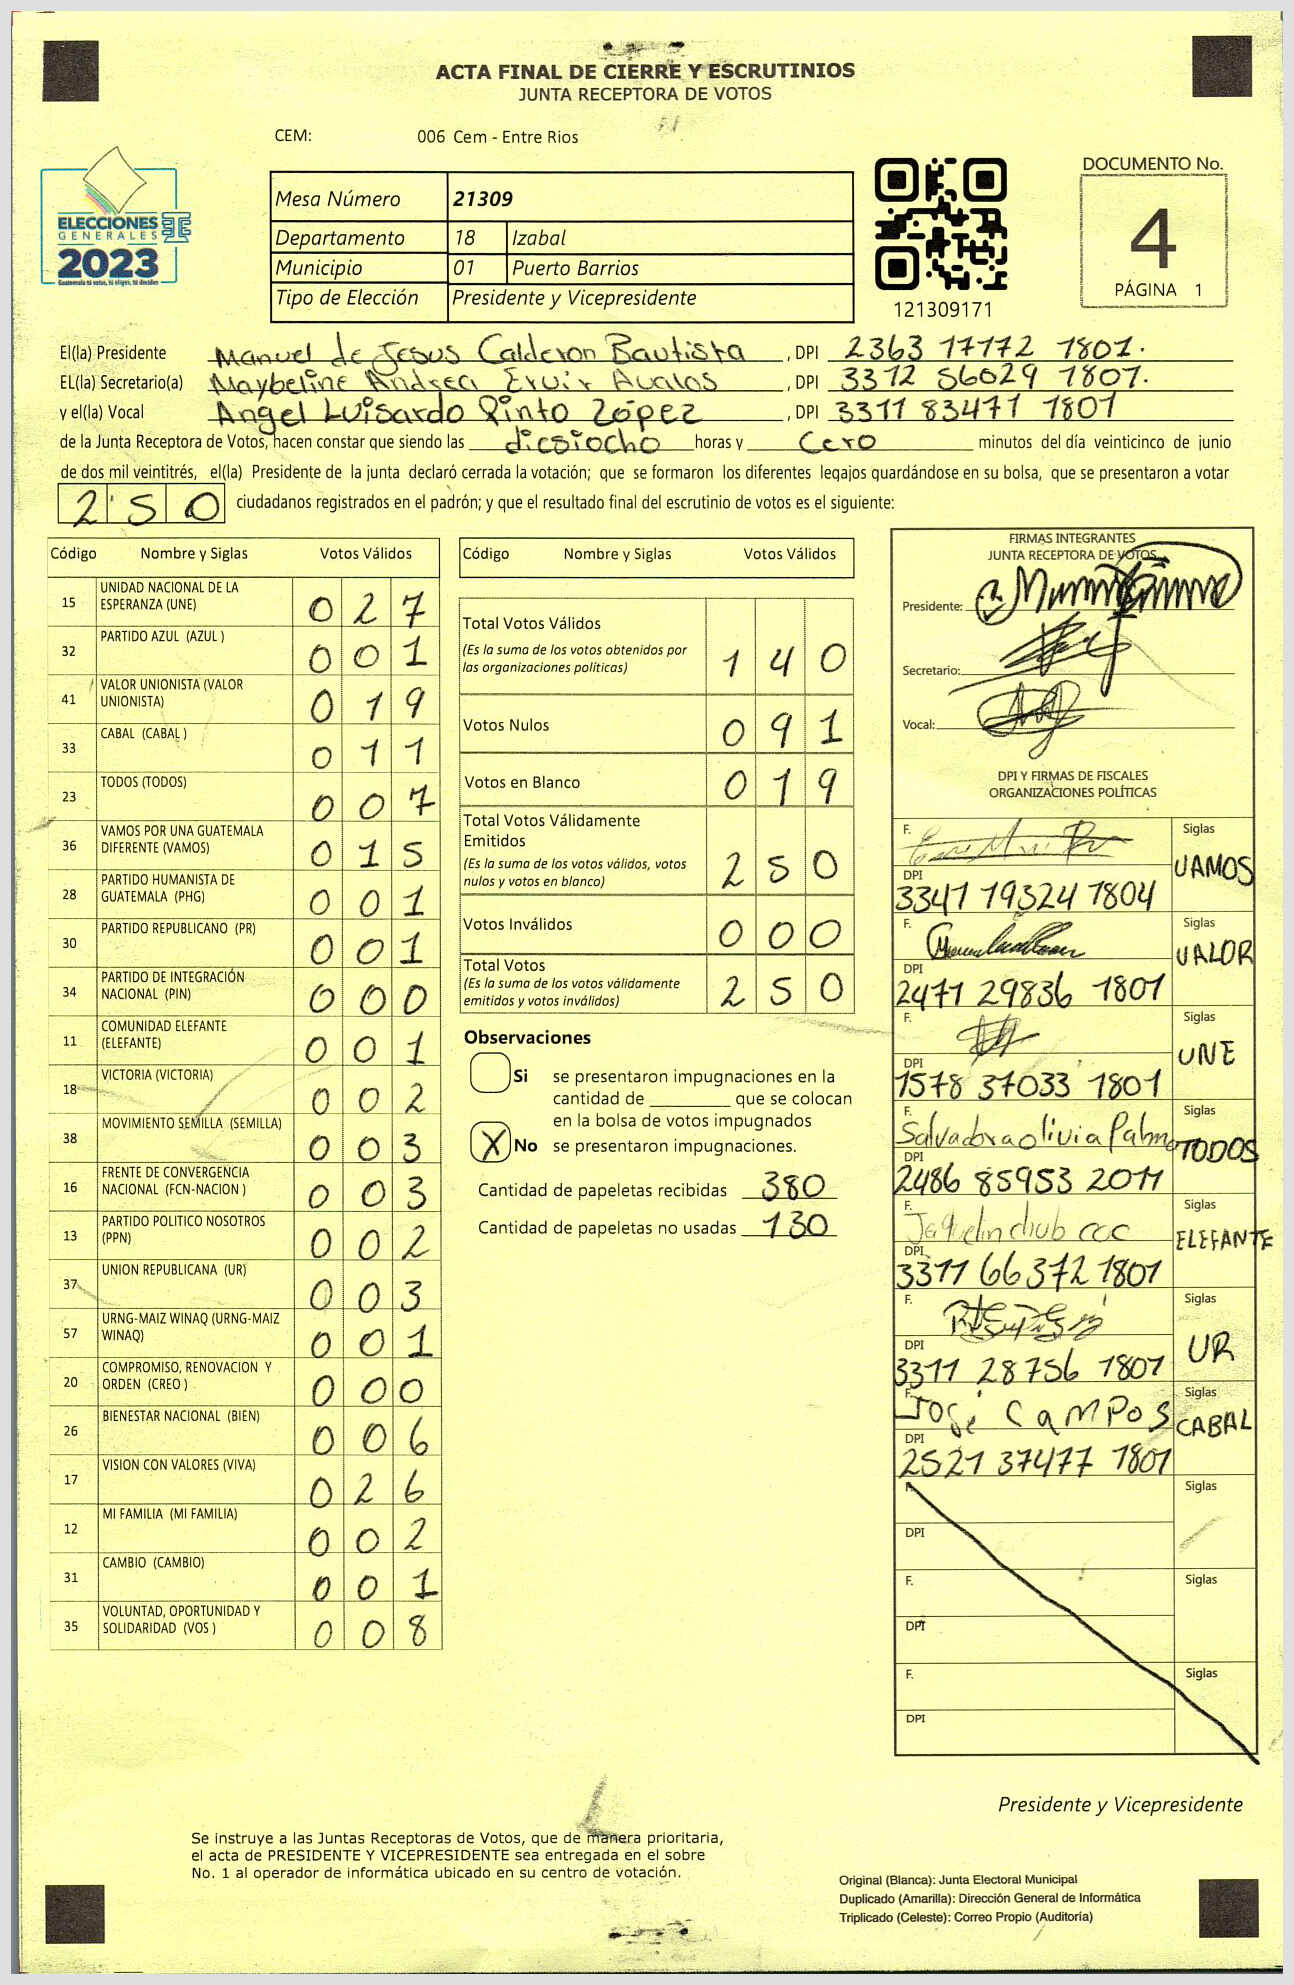 ACTA FINAL DE CIERRE Y ESCRUTINIOS
JUNTA RECEPTORA DE VOTOS
CEM: 006 Cem - Entre Rios
ELECCIONES
GENERALES
2023
Guatemala tú votas, tú eliges, tú decides
Mesa Número 21309
Departamento 18 Izabal
Municipio 01 Puerto Barrios
Tipo de Elección Presidente y Vicepresidente
121309171
DOCUMENTO No.
4
PÁGINA 1
El(la) Presidente Manuel de Jesus Calderon Bautista , DPI 2363 17172 1801.
EL(la) Secretario(a) Maybeline Andrea Avalos , DPI 3312 56029 1801.
y el(la) Vocal Angel Luisardo Pinto López , DPI 3311 83471 1801
de la Junta Receptora de Votos, hacen constar que siendo las diesiocho horas y Cero minutos del día veinticinco de junio
de dos mil veintitrés, el(la) Presidente de la junta declaró cerrada la votación; que se formaron los diferentes legajos guardándose en su bolsa, que se presentaron a votar
250 ciudadanos registrados en el padrón; y que el resultado final del escrutinio de votos es el siguiente:
Código Nombre y Siglas Votos Válidos
15 UNIDAD NACIONAL DE LA ESPERANZA (UNE) 0 2 7
32 PARTIDO AZUL (AZUL ) 0 0 1
41 VALOR UNIONISTA (VALOR UNIONISTA) 0 1 9
33 CABAL (CABAL ) 0 1 1
23 TODOS (TODOS) 0 0 7
36 VAMOS POR UNA GUATEMALA DIFERENTE (VAMOS) 0 1 5
28 PARTIDO HUMANISTA DE GUATEMALA (PHG) 0 0 1
30 PARTIDO REPUBLICANO (PR) 0 0 1
34 PARTIDO DE INTEGRACIÓN NACIONAL (PIN) 0 0 0
11 COMUNIDAD ELEFANTE (ELEFANTE) 0 0 1
18 VICTORIA (VICTORIA) 0 0 2
38 MOVIMIENTO SEMILLA (SEMILLA) 0 0 3
16 FRENTE DE CONVERGENCIA NACIONAL (FCN-NACION ) 0 0 3
13 PARTIDO POLITICO NOSOTROS (PPN) 0 0 2
37 UNION REPUBLICANA (UR) 0 0 3
57 URNG-MAIZ WINAQ (URNG-MAIZ WINAQ) 0 0 1
20 COMPROMISO, RENOVACION Y ORDEN (CREO ) 0 0 0
26 BIENESTAR NACIONAL (BIEN) 0 0 6
17 VISION CON VALORES (VIVA) 0 2 6
12 MI FAMILIA (MI FAMILIA) 0 0 2
31 CAMBIO (CAMBIO) 0 0 1
35 VOLUNTAD, OPORTUNIDAD Y SOLIDARIDAD (VOS ) 0 0 8
Código Nombre y Siglas Votos Válidos
Total Votos Válidos
(Es la suma de los votos obtenidos por
las organizaciones políticas) 1 4 0
Votos Nulos 0 9 1
Votos en Blanco 0 1 9
Total Votos Válidamente
Emitidos
(Es la suma de los votos válidos, votos
nulos y votos en blanco) 2 5 0
Votos Inválidos 0 0 0
Total Votos
(Es la suma de los votos válidamente
emitidos y votos inválidos) 2 5 0
Observaciones
Si se presentaron impugnaciones en la
cantidad de ________ que se colocan
en la bolsa de votos impugnados
X No se presentaron impugnaciones.
Cantidad de papeletas recibidas 380
Cantidad de papeletas no usadas 130
FIRMAS INTEGRANTES
JUNTA RECEPTORA DE VOTOS
Presidente:
Secretario:
Vocal:
DPI Y FIRMAS DE FISCALES
ORGANIZACIONES POLÍTICAS
F. Siglas VAMOS
DPI 3341 19324 1804
F. Siglas VALOR
DPI 2471 29836 1801
F. Siglas UNE
DPI 1578 37033 1801
F. Salvadora olivia Palma Siglas TODOS
DPI 2486 85953 2011
F. Jaquelin chub coc Siglas ELEFANTE
DPI 3311 66372 1801
F. Siglas UR
DPI 3311 28756 1801
F. José CAMPOS Siglas CABAL
DPI 2521 37477 1801
F. Siglas
DPI
F. Siglas
DPI
F. Siglas
DPI
Presidente y Vicepresidente
Se instruye a las Juntas Receptoras de Votos, que de manera prioritaria,
el acta de PRESIDENTE Y VICEPRESIDENTE sea entregada en el sobre
No. 1 al operador de informática ubicado en su centro de votación.
Original (Blanca): Junta Electoral Municipal
Duplicado (Amarilla): Dirección General de Informática
Triplicado (Celeste): Correo Propio (Auditoría)